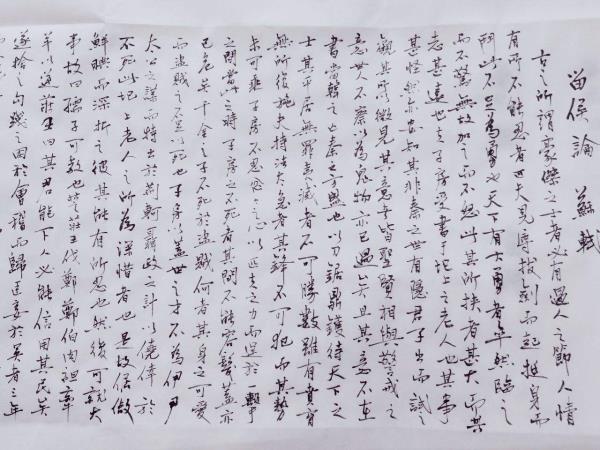 留侯論 蘇軾
古之所謂豪傑之士者必有過人之節人情
有所不能忍者匹夫見辱拔劍而起挺身而
鬥此不足為勇也天下有大勇者卒然臨之
而不驚無故加之而不怒此其所挾者甚大而其
志甚遠也夫子房受書于圯上之老人也其事
甚怪然亦安知其非秦之世有隱君子出而試之
觀其所微見其意者皆聖賢相與警戒之
意世人不察以為鬼物亦已過矣且其意不在
書當韓之亡秦之方盛也以刀鋸鼎鑊待天下之
士其平居無罪夷滅者不可勝數雖有賁育
無所復施夫持法太急者其鋒不可犯而其勢
未可乘子房不忍忿忿之心以匹夫之力而逞於一擊
之間當此之時子房之不死者其間不能容髮蓋亦
已危矣千金之子不死於盜賊何者其身之可愛
而盜賊之不足以死也子房以蓋世之才不為伊尹
太公之謀而特出於荊軻聶政之計以僥倖於
不死此圯上老人之所為深惜者也是故倨傲
鮮腆而深折之彼其能有所忍也然後可就大
事故曰孺子可教也楚莊王伐鄭鄭伯肉袒牽
羊以逆莊王曰其君能下人必能信用其民矣
遂捨之勾踐之困於會稽而歸臣妾於吳者三年